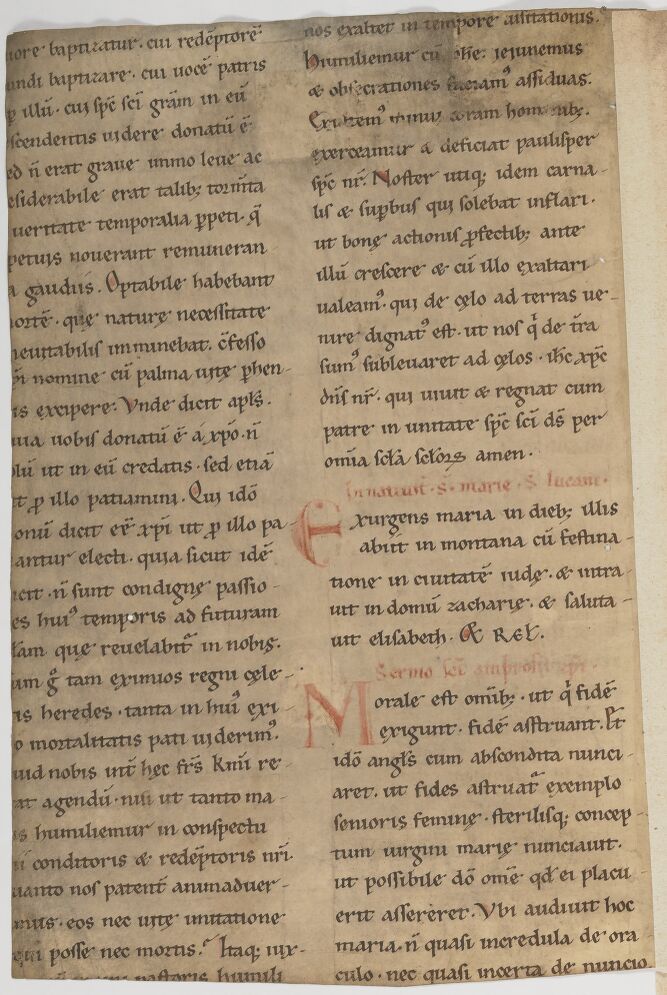 more baptizatur. cui redēptorē
undi baptizare. cui vocē patris
ꝑ illū. cui spc̄ sci grām in eū
scendentis videre donatū ē
ed n̄ erat grave immo leve ac
esiderabile erat talib; tormta
veritate temporalia ꝑpeti. q̄
petuis noverant remuneran
a gaudiis. Optabile habebant
ortē. quę naturę necessitate
nevitabilis imminebat. c̄fesso
nomine cū palma vitę ꝑhen-
is excipere. Unde dicit apl̄s.
uia vobis donatū ē a xp̄o. n̄
olū ut in eū credatis. sed etiā
t ꝓ illo patiamini. Qui idō
onū dicit eē xp̄i ut ꝓ illo pa-
antur electi. quia sicut idē
icit. n̄ sunt condignę passio-
es hui᾽ temporis ad futuram
łam quę revelabit᷑ in nobis.
um g̊ tam eximios regni cęle-
is heredes. tanta in hui᾽ exi-
o mortalitatis pati viderim᾽.
uid nobis int̄ hec fr̄s kmi re-
at agendū. nisi ut tanto ma-
s humiliemur in conspectu
conditoris & redēptoris nr̄i.
uanto nos patent̄ animadver-
mus. eos nec vitę imitatione
qui posse nec mortis. Itaq; iux-
pastoris humili
nos exaltet in tempore visitationis.
humiliemur cū ieiunemus
& obsecrationes assiduas.
minu᾽ coram hominib;
exerceamur & deficiat paulisper
spc̄ nr̄. Noster utiq; idem carna-
lis & supbus qui solebat inflari.
ut bonę actionis ꝓfectib; ante
illū crescere & cū illo exaltari
valeam᾽. qui de cęlo ad terras ve-
nire dignat᾽ est. ut nos q̄ de t̄ra
sum᾽ sublevaret ad cęlos. ih̄c xp̄c
dn̄s nr̄. qui vivit & regnat cum
patre in unitate spc̄ sci d̄s per
omīa scła scłorꝝ amen.
s. marię. s. lucam.
Exurgens maria in dieb; illis
abiit in montana cū festina-
tione in civitatē iudę. & intra-
vit in domū zacharię. & saluta-
vit elisabeth. & REL.
Sermo sci ambrosii epi.
Morale est omīb; ut q̄ fidē
exigunt. fidē astruant. Et
idō angl̄s cum abscondita nunci-
aret. ut fides astruat᷑ exemplo
senioris feminę. sterilisq; concep-
tum virgini marię nunciavit.
ut possibile dō omē qd̄ ei placu-
erit assereret. Ubi audivit hoc
maria. n̄ quasi incredula de ora-
culo. nec quasi incerta de nuncio